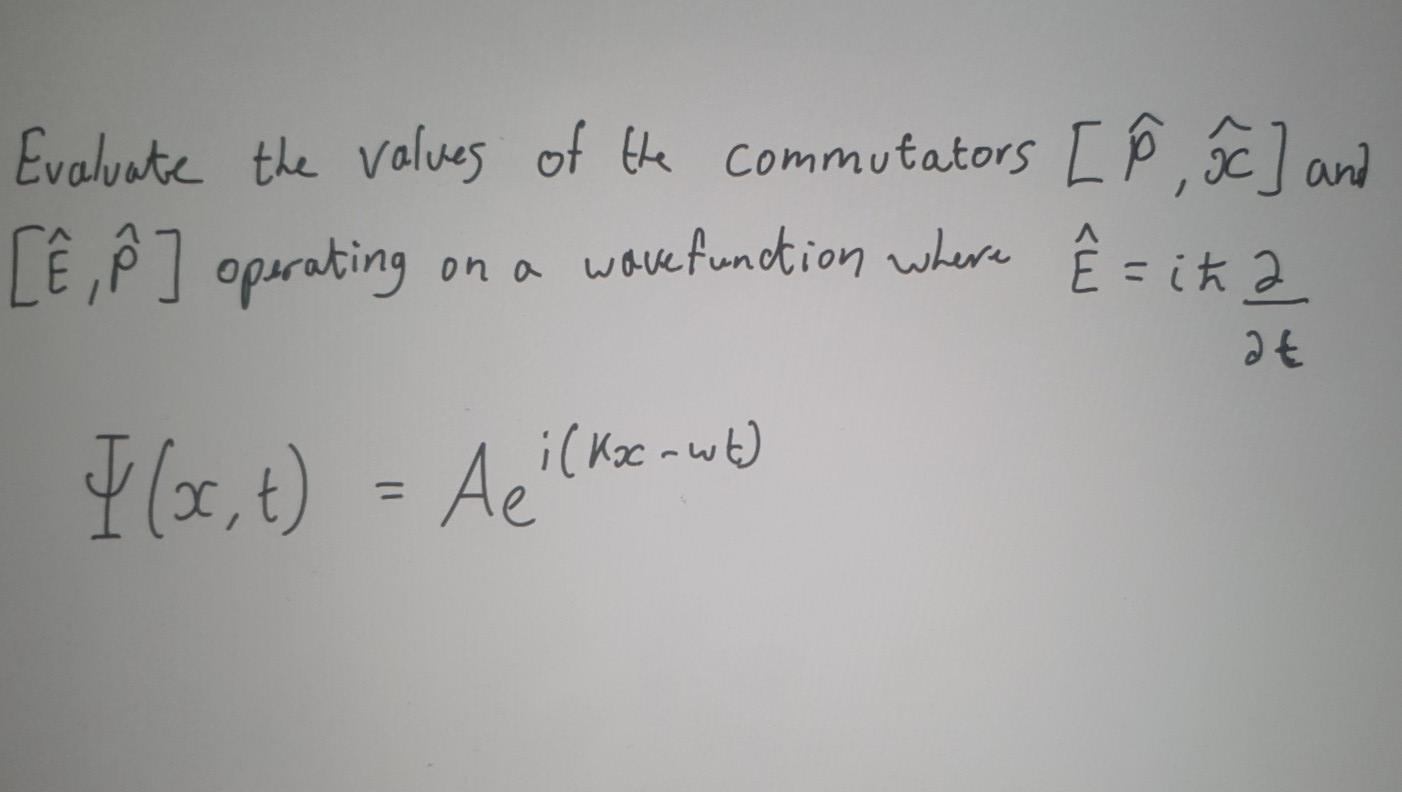 Evaluate the values of the commutators [p̂, x̂] and
[Ê, p̂] operating on a wavefunction where Ê = iħ ∂/∂t
Ψ(x,t) = Ae^{i(kx-wt)}